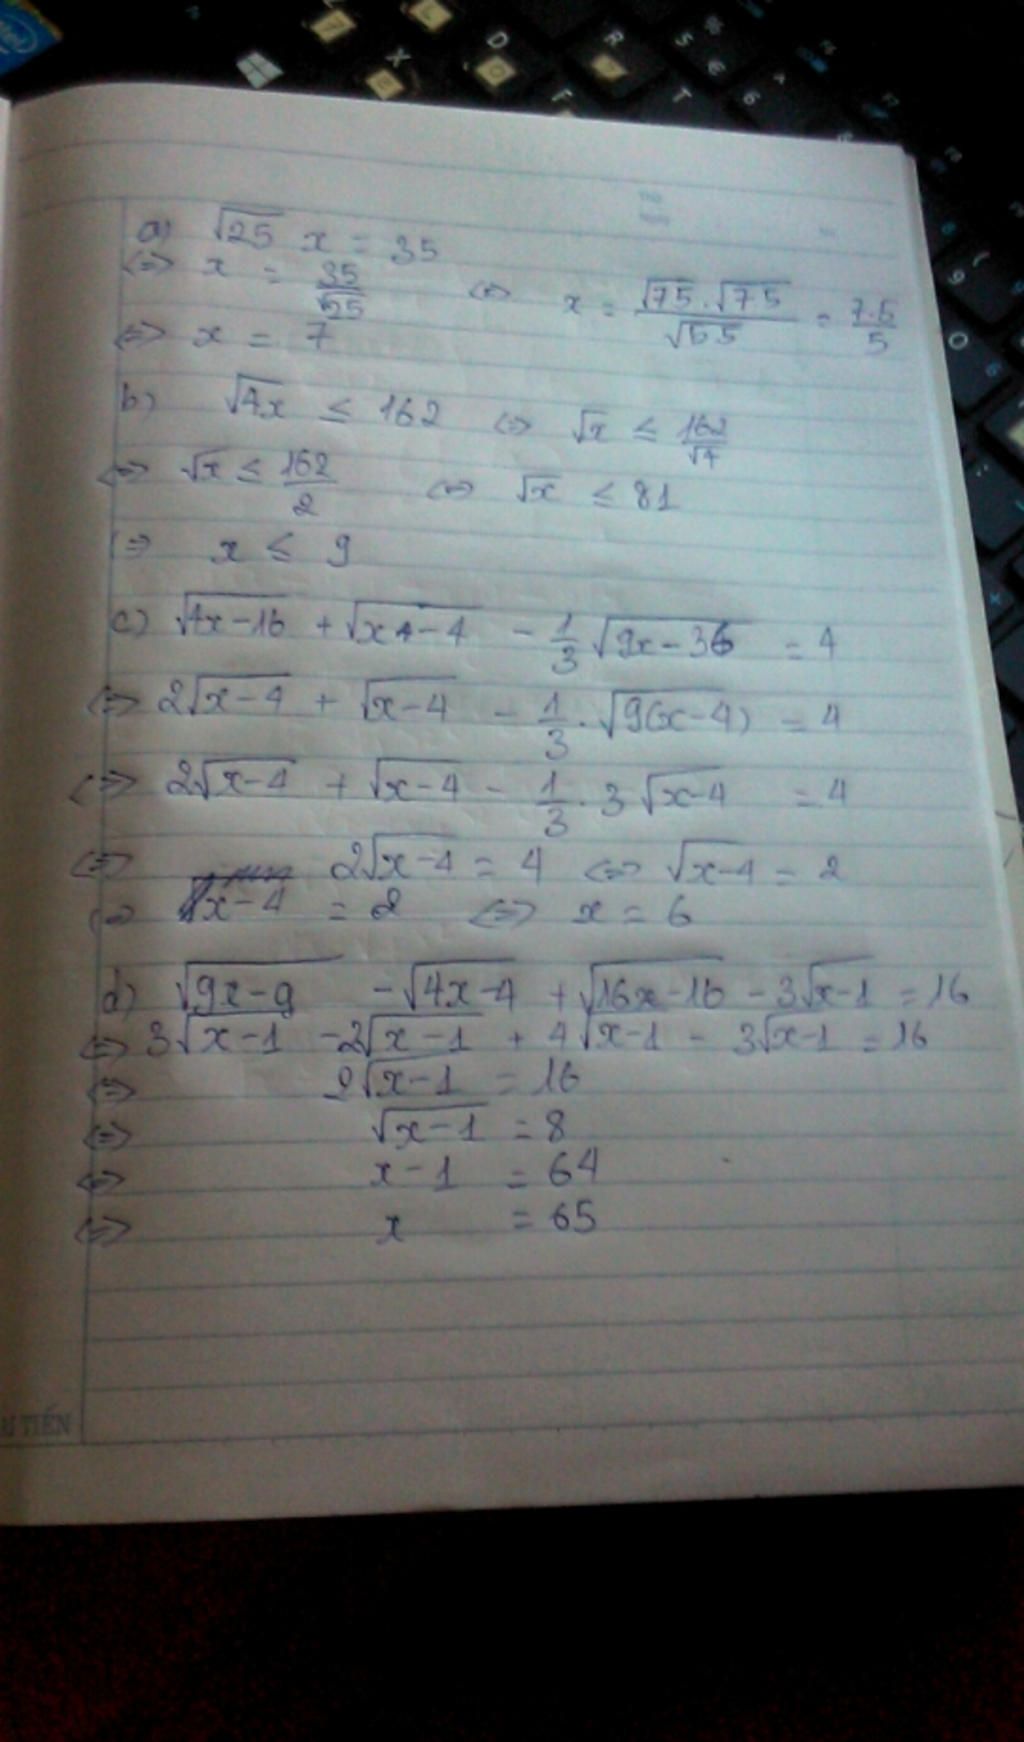 a) √25 x = 35
⇔ x = 35/√25 ⇔ x = √75.√75/√55 = 7.5/5
⇔ x = 7
b) √4x ≤ 162 ⇔ √x ≤ 162/√4
⇔ √x ≤ 162/2 ⇔ √x ≤ 81
⇔ x ≤ 9
c) √4x-16 + √x-4 - 1/3 √9x-36 = 4
⇔ 2√x-4 + √x-4 - 1/3 . √9(x-4) = 4
⇔ 2√x-4 + √x-4 - 1/3 . 3√x-4 = 4
⇔ 2√x-4 = 4 ⇔ √x-4 = 2
⇔ x-4 = 2 ⇔ x = 6
d) √9x-9 - √4x-4 + √16x-16 - 3√x-1 = 16
⇔ 3√x-1 - 2√x-1 + 4√x-1 - 3√x-1 = 16
⇔ 2√x-1 = 16
⇔ √x-1 = 8
⇔ x-1 = 64
⇔ x = 65
TIẾN